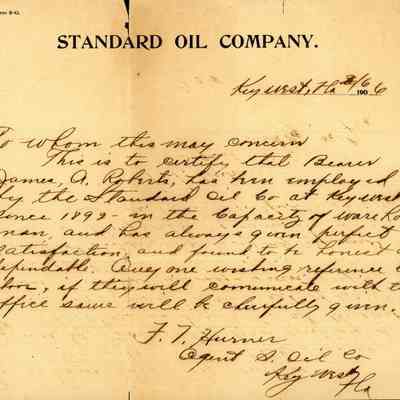 STANDARD OIL COMPANY.
Key West, Fla 2/6 1906
To whom this may concern
This is to certify that Bearer
James, A. Roberts, has been employed
by the Standard Oil Co at Key West
since 1892 - in the Capacity of ware Ho
man, and has always given perfect
satisfaction, and found to be honest &
dependable. Any one wishing reference
if they will comunicate with t
office same will be chearfully given.
F. T. Hurner
Agent S. Oil Co
Key West
Fla